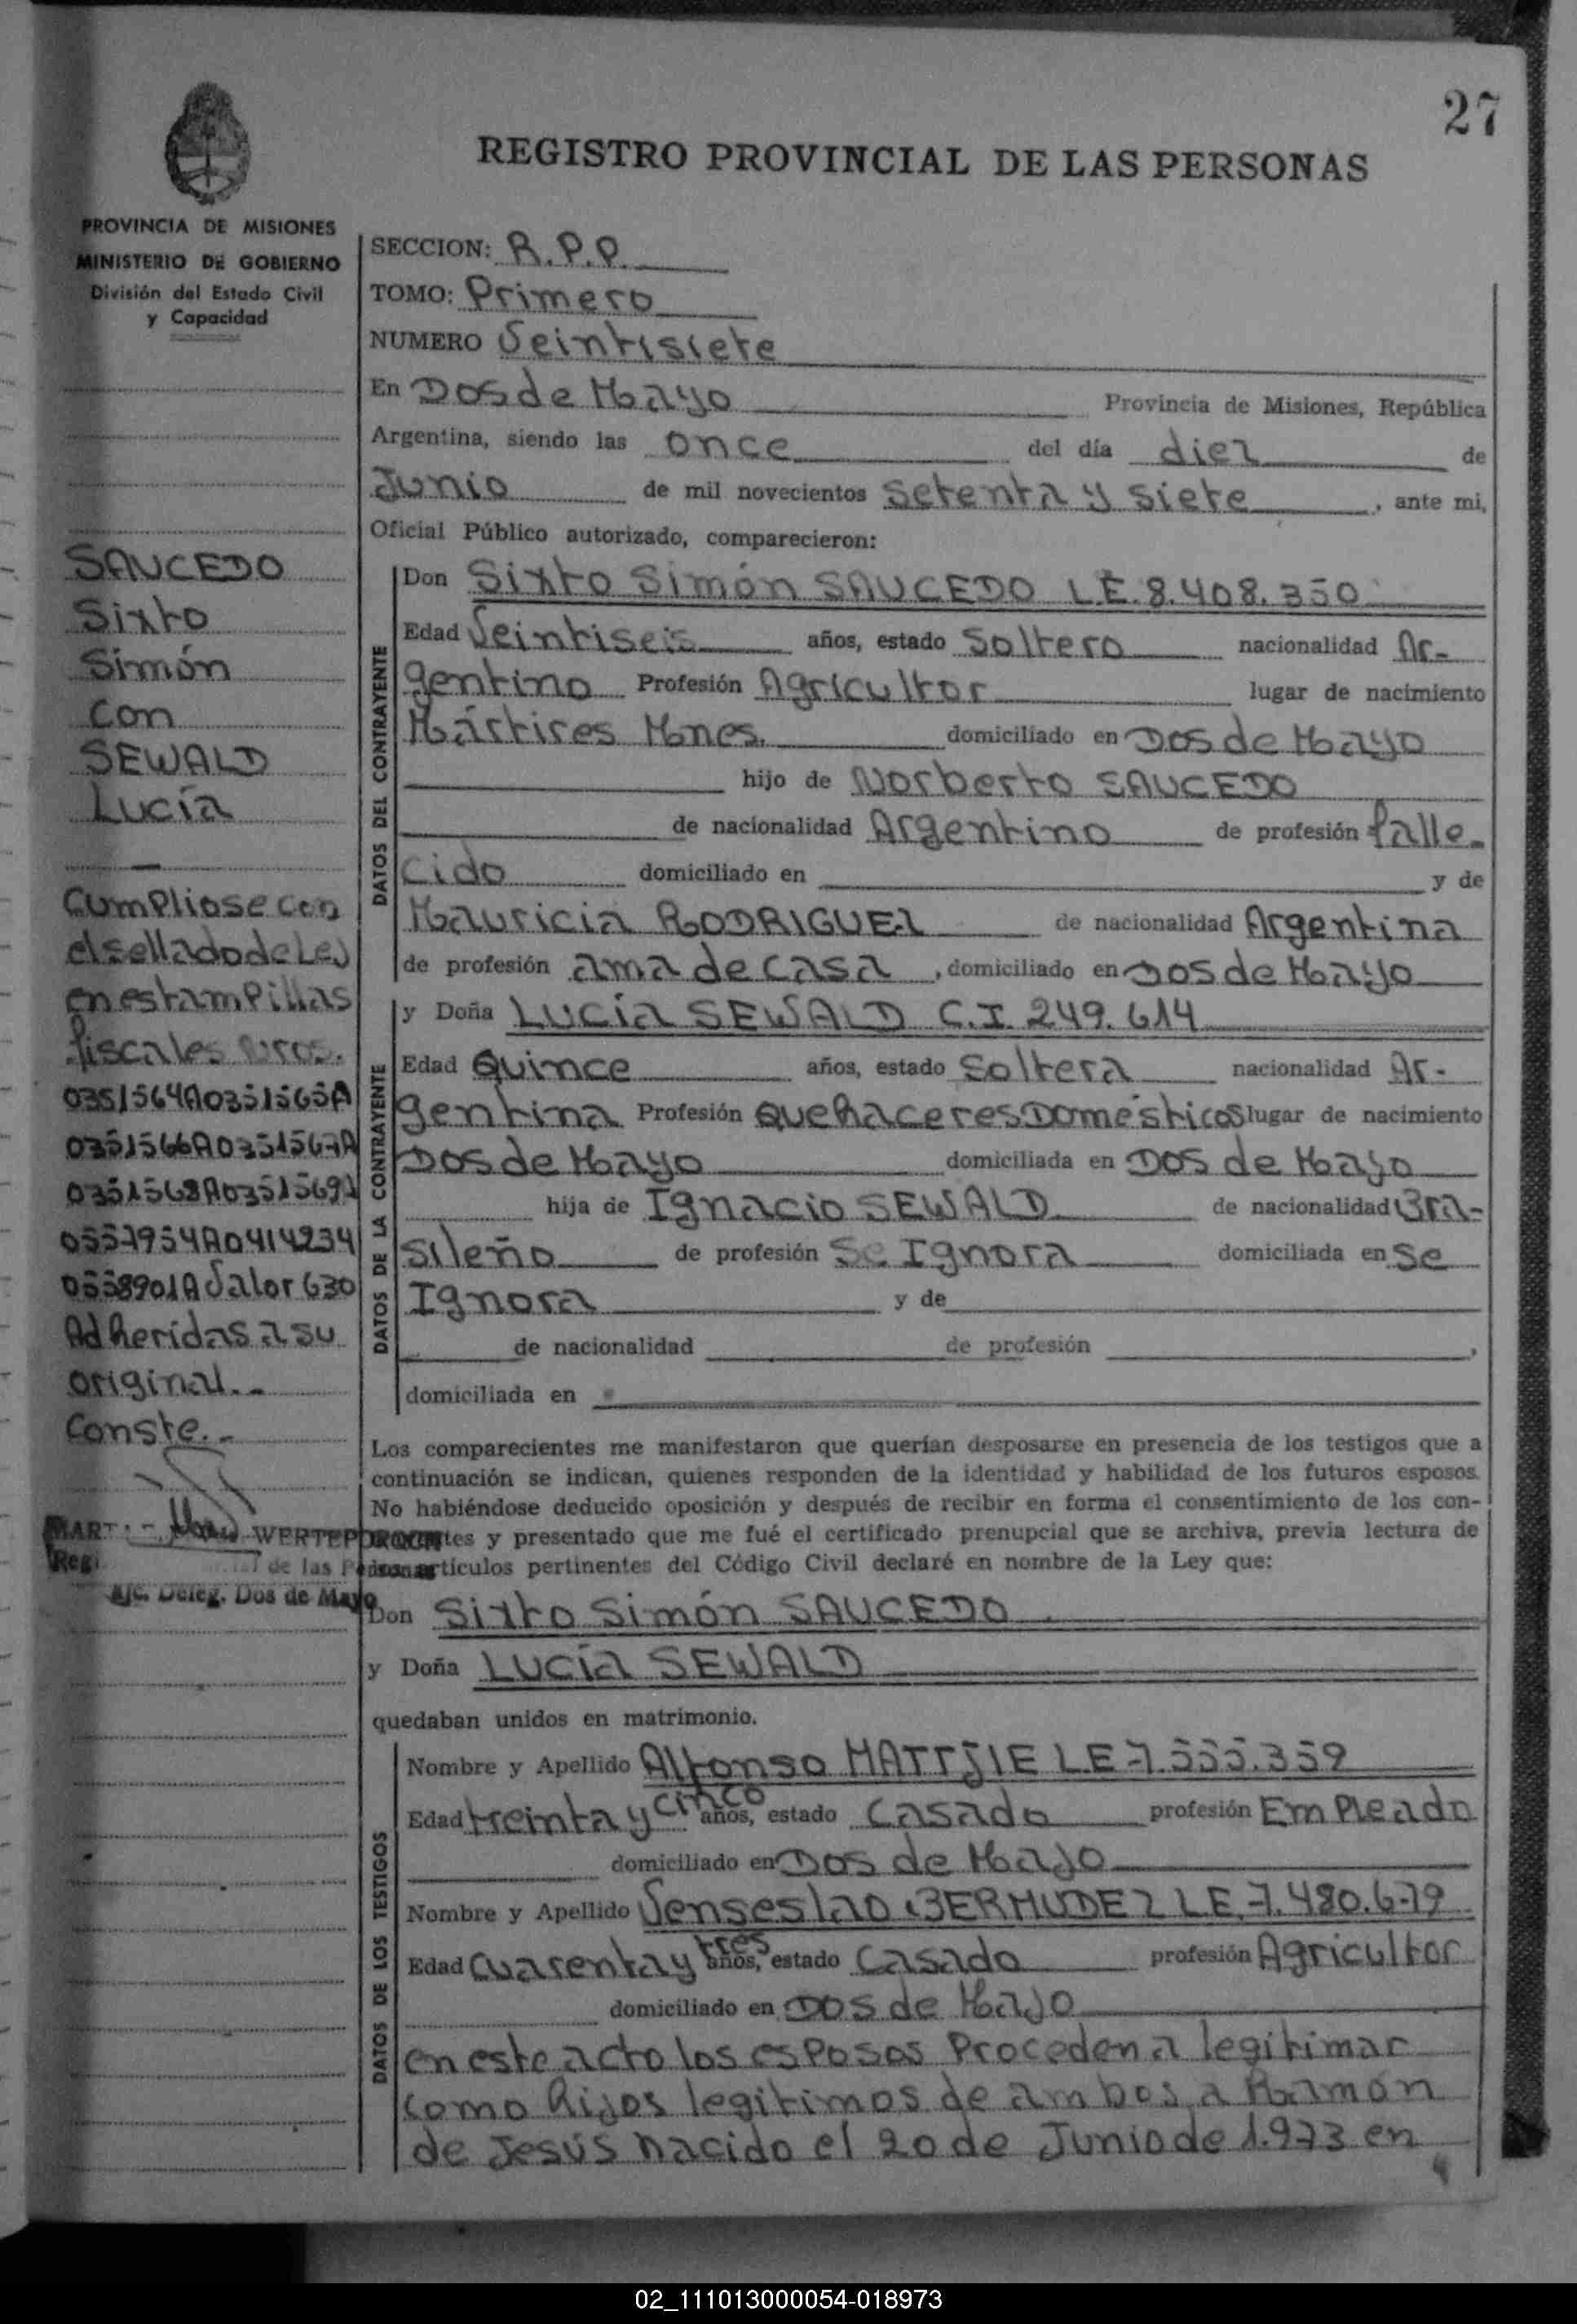 27
REGISTRO PROVINCIAL DE LAS PERSONAS
PROVINCIA DE MISIONES
MINISTERIO DE GOBIERNO
División del Estado Civil
y Capacidad
SECCION: R.P.P.
TOMO: Primero
NUMERO Veintisiete
En Dos de Mayo Provincia de Misiones, República
Argentina, siendo las once del día diez de
Junio de mil novecientos setenta y siete, ante mi,
Oficial Público autorizado, comparecieron:
SAUCEDO
Sixto
Simón
con
SEWALD
Lucía
Cumpliose con
el sellado de Ley
en estampillas
fiscales
0351564A0351565A
0351566A0351567A
0351568A0351569A
0557954A0414234
0558901A Valor 630
Adheridas a su
original.-
Conste.-
WERTEP
de las
Deleg. Dos de Mayo
DATOS DEL CONTRAYENTE
Don Sixto Simón SAUCEDO L.E. 8.408.350
Edad Veintiseis años, estado Soltero nacionalidad Ar-
gentino Profesión Agricultor lugar de nacimiento
Mártires Mnes. domiciliado en Dos de Mayo
hijo de Norberto SAUCEDO
de nacionalidad Argentino de profesión falle-
cido domiciliado en y de
Mauricia RODRIGUEZ de nacionalidad Argentina
de profesión ama de casa, domiciliado en Dos de Mayo
DATOS DE LA CONTRAYENTE
y Doña Lucía SEWALD C.I. 249.614
Edad Quince años, estado Soltera nacionalidad Ar-
gentina Profesión Quehaceres Domésticos lugar de nacimiento
Dos de Mayo domiciliada en Dos de Mayo
hija de Ignacio SEWALD de nacionalidad Bra-
sileño de profesión Se Ignora domiciliada en Se
Ignora y de
de nacionalidad de profesión ,
domiciliada en
Los comparecientes me manifestaron que querían desposarse en presencia de los testigos que a
continuación se indican, quienes responden de la identidad y habilidad de los futuros esposos.
No habiéndose deducido oposición y después de recibir en forma el consentimiento de los con-
tes y presentado que me fué el certificado prenupcial que se archiva, previa lectura de
artículos pertinentes del Código Civil declaré en nombre de la Ley que:
Don Sixto Simón SAUCEDO
y Doña Lucía SEWALD
quedaban unidos en matrimonio.
DATOS DE LOS TESTIGOS
Nombre y Apellido Alfonso MATTJIE L.E 7.555.359
Edad treinta y cinco años, estado Casado profesión Empleado
domiciliado en Dos de Mayo
Nombre y Apellido Venseslao BERMUDEZ L.E. 7.480.679
Edad Cuarenta y tres años, estado Casado profesión Agricultor
domiciliado en Dos de Mayo
en este acto los esposos proceden a legitimar
como hijos legítimos de ambos a Ramón
de Jesús nacido el 20 de Junio de 1.973 en
02_111013000054-018973